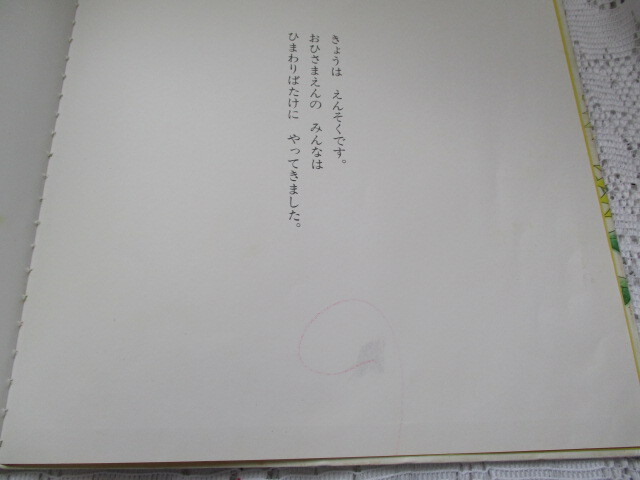 きょうは　えんそくです。
おひさまえんの　みんなは
ひまわりばたけに　やってきました。